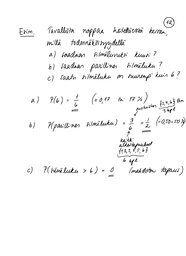 12
Esim. Tavallista noppaa heitetään kerran,
millä todennäköisyydellä
a) saadaan silmäluvuksi kuusi?
b) saadaan parillinen silmäluku?
c) saatu silmäluku on suurempi kuin 6?
a) P(6) = 1/6
parilliset {2,4,6} eli 3 kpl
b) P(parillinen silmäluku) = 3/6 = 1/2 (=0,50=50%)
kaikki
alkeistapaukset
{1,2,3,4,5,6}
6 kpl
c) P(silmäluku > 6) = 0 (mahdoton tapaus)